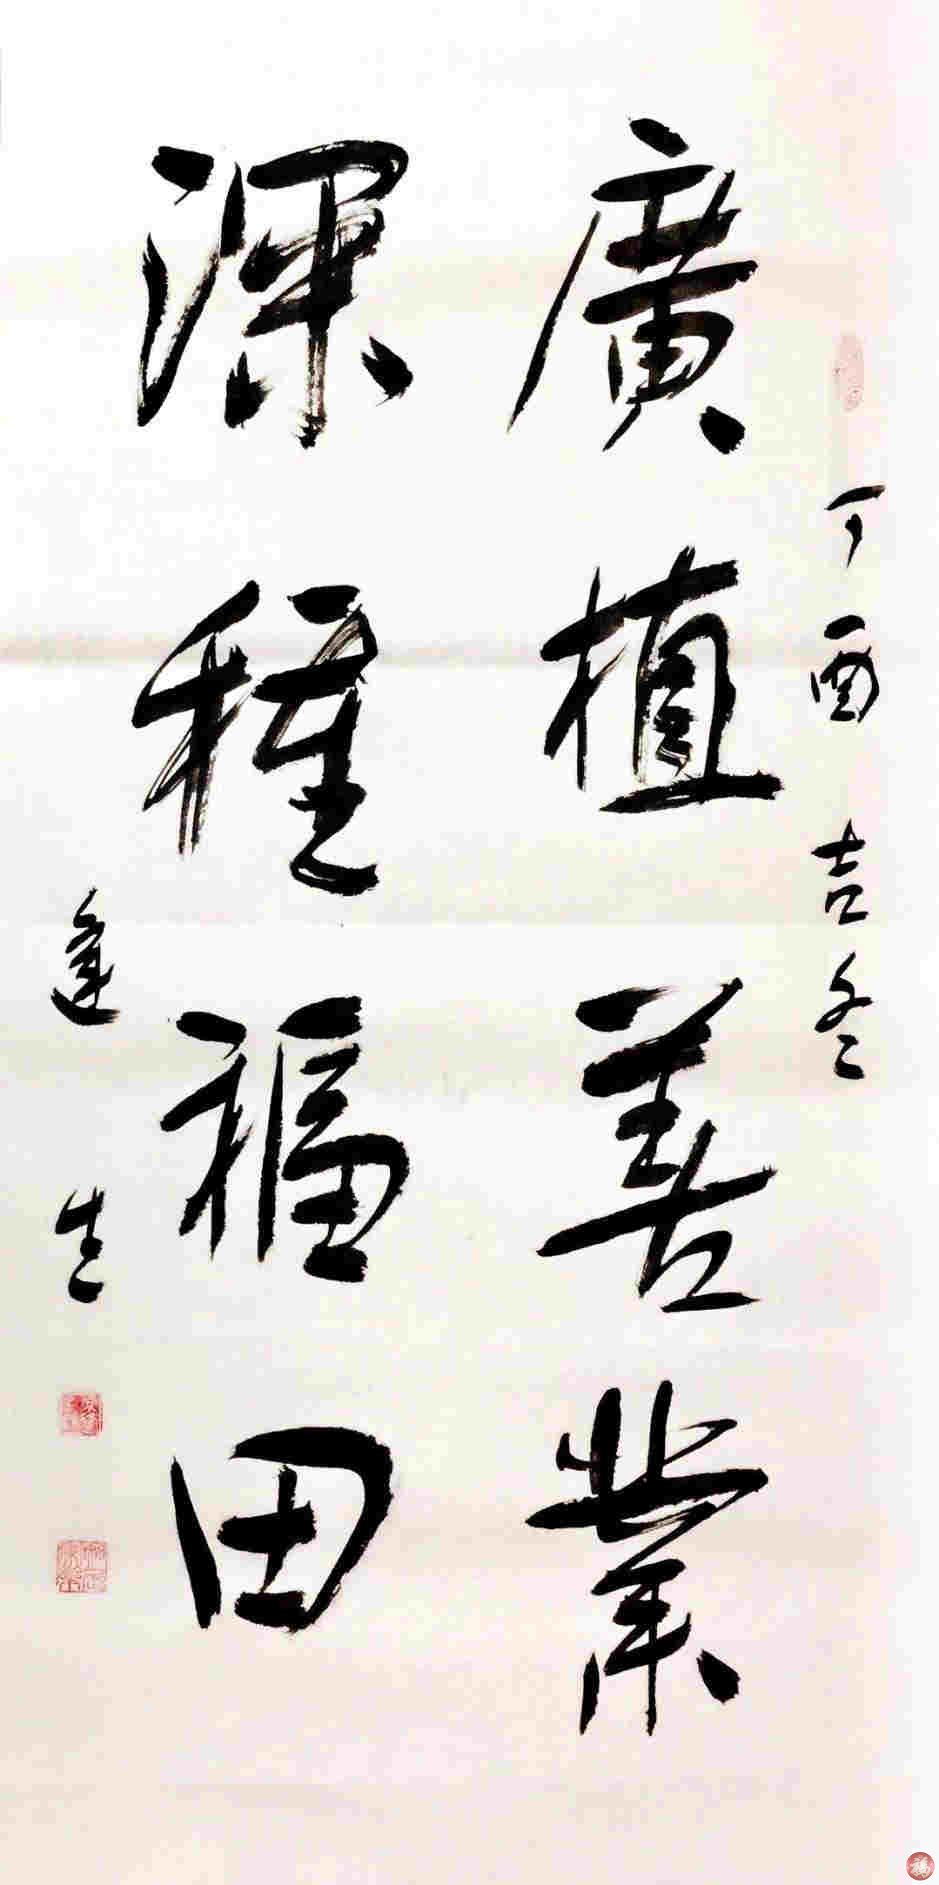 丁酉吉冬
廣植善業
深種福田
逢生
福